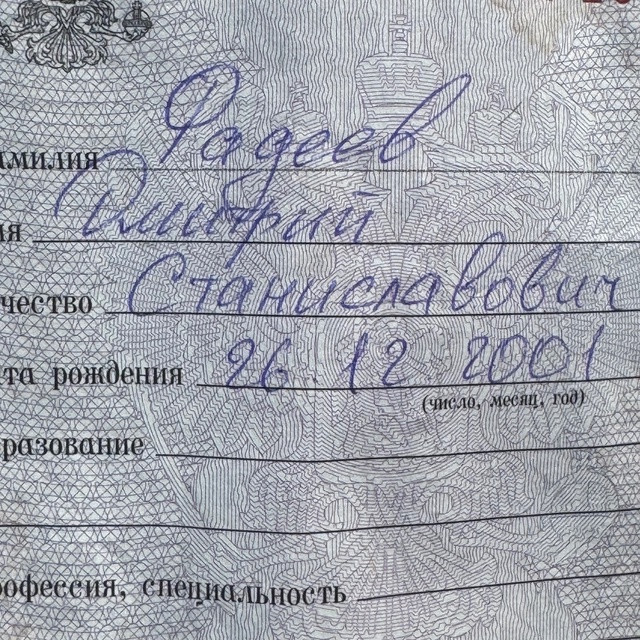 амилия Фадеев
я Дмитрий
чество Станиславович
та рождения 26.12 2001
(число, месяц, год)
разование
рофессия, специальность